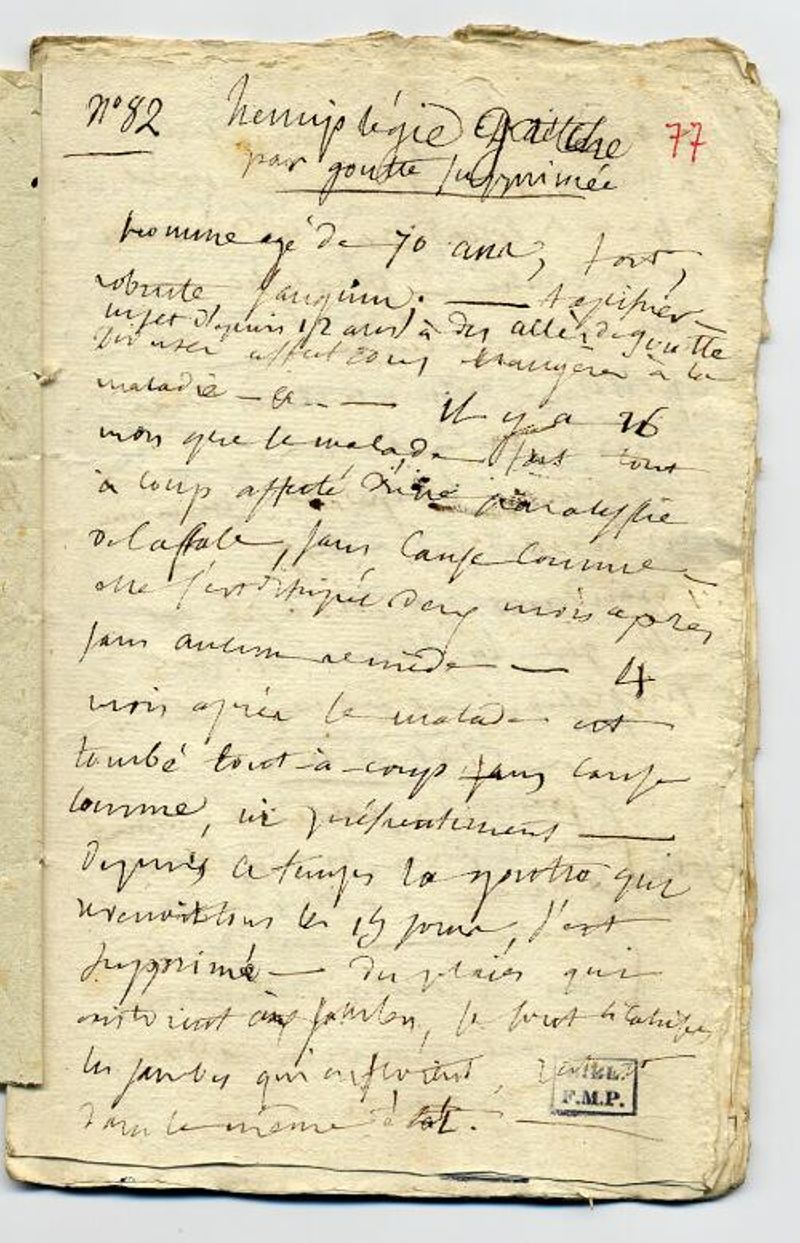 n° 82 hemiplégie Gauche 77
par goutte supprimée
homme agé de 70 ans, fort,
robuste sanguin. — tapissier
sujet depuis 12 ans à des accès de goutte
étrangères à la
maladie — — il y a 26
mois que le malade fut tout
à coup affecté d'une paralysie
de la face, sans cause connue
elle s'est dissipée deux mois après
sans aucun remède — 4
mois après le malade est
tombé tout-à-coup sans cause
connue, ni
Depuis ce temps la goutte qui
revenoit tous les 15 jours, s'est
supprimé — des plaies qui
existoient aux jambes, se sont
les jambes qui enfloient,
dans le même état. —
F.M.P.